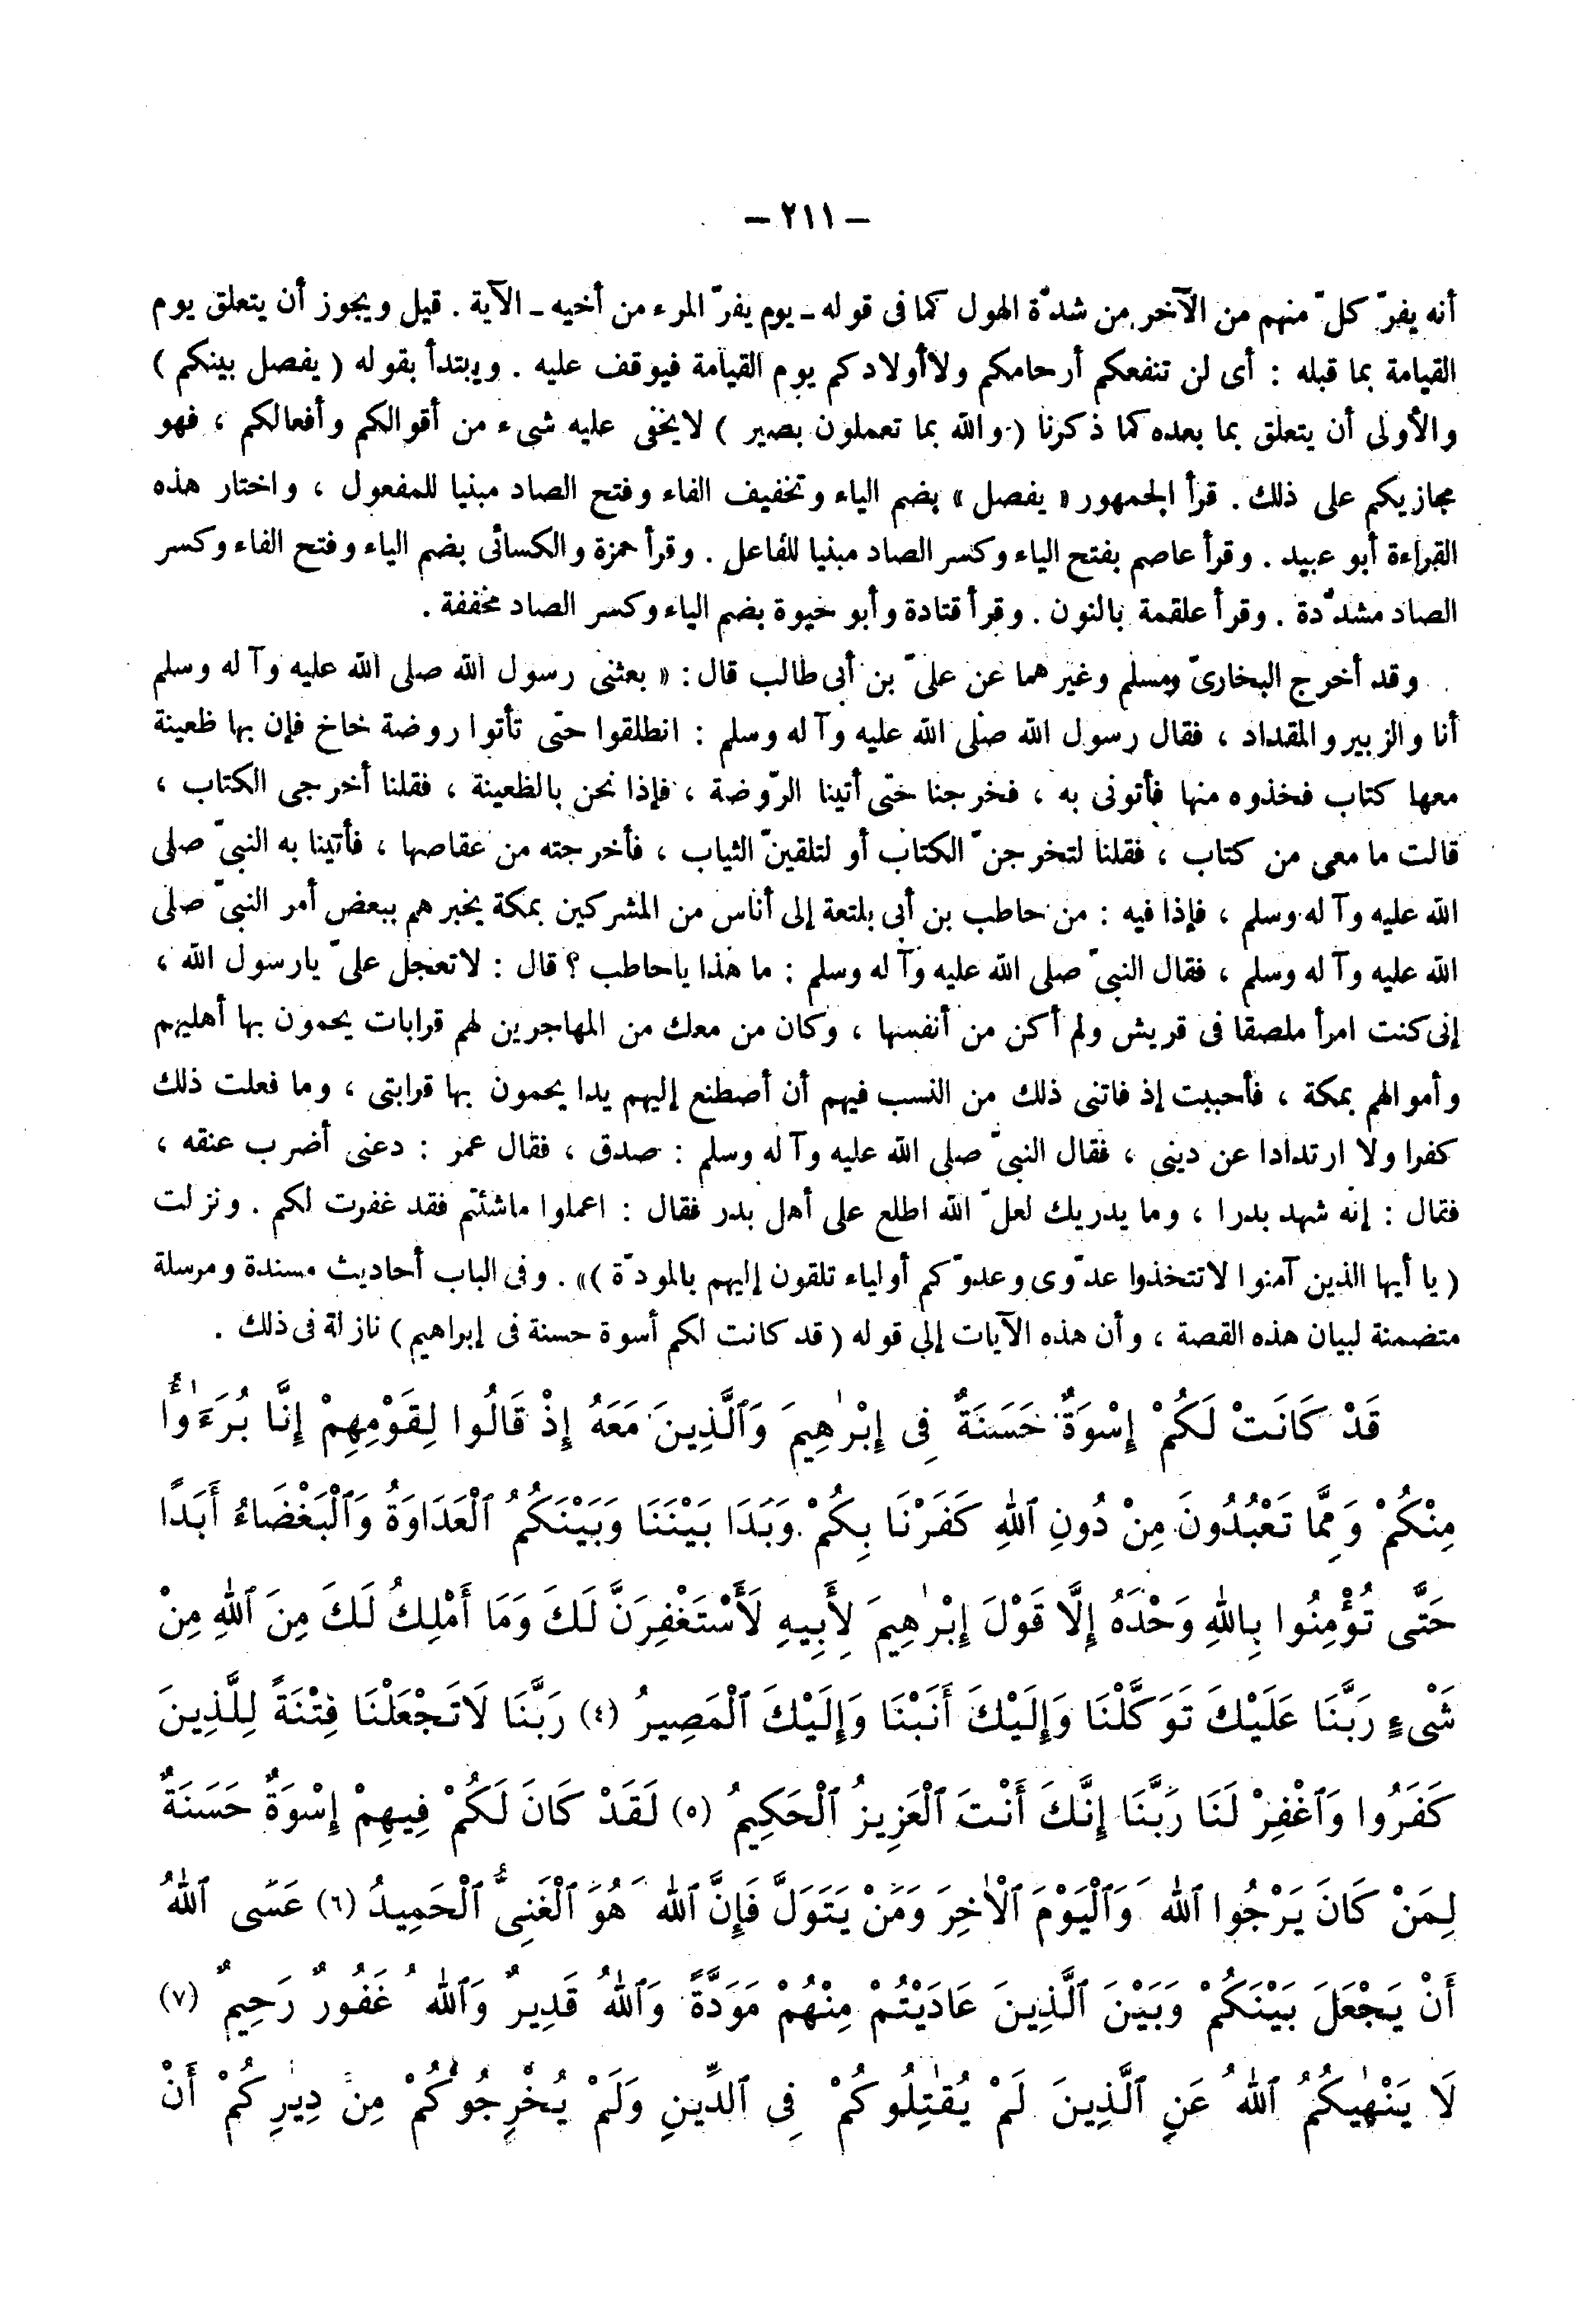 — ٢١١ —
أنه يفرّ كلّ منهم من الآخر من شدّة الهول كما فى قوله ـ يوم يفرّ المرء من أخيه ـ الآية . قيل ويجوز أن يتعلق يوم
القيامة بما قبله : أى لن تنفعكم أرحامكم ولا أولادكم يوم القيامة فيوقف عليه . ويبتدأ بقوله ( يفصل بينكم )
والأولى أن يتعلق بما بعده كما ذكرنا ( والله بما تعملون بصير ) لايخفى عليه شىء من أقوالكم وأفعالكم ، فهو
مجازيكم على ذلك . قرأ الجمهور « يفصل » بضم الياء وتخفيف الفاء وفتح الصاد مبنيا للمفعول ، واختار هذه
القراءة أبو عبيد . وقرأ عاصم بفتح الياء وكسر الصاد مبنيا للفاعل . وقرأ حمزة والكسائى بضم الياء وفتح الفاء وكسر
الصاد مشدّدة . وقرأ علقمة بالنون . وقرأ قتادة وأبو حيوة بضم الياء وكسر الصاد مخففة .
وقد أخرج البخارىّ ومسلم وغيرهما عن علىّ بن أبى طالب قال : « بعثنى رسول الله صلى الله عليه وآله وسلم
أنا والزبير والمقداد ، فقال رسول الله صلى الله عليه وآله وسلم : انطلقوا حتى تأتوا روضة خاخ فإن بها ظعينة
معها كتاب فخذوه منها فأتونى به ، فخرجنا حتى أتينا الرّوضة ، فإذا نحن بالظعينة ، فقلنا أخرجى الكتاب ،
قالت ما معى من كتاب ، فقلنا لتخرجنّ الكتاب أو لتلقينّ الثياب ، فأخرجته من عقاصها ، فأتينا به النبىّ صلى
الله عليه وآله وسلم ، فإذا فيه : من حاطب بن أبى بلتعة إلى أناس من المشركين بمكة يخبرهم ببعض أمر النبىّ صلى
الله عليه وآله وسلم ، فقال النبىّ صلى الله عليه وآله وسلم : ما هذا ياحاطب ؟ قال : لاتعجل علىّ يارسول الله ،
إنى كنت امرأ ملصقا فى قريش ولم أكن من أنفسها ، وكان من معك من المهاجرين لهم قرابات يحمون بها أهليهم
وأموالهم بمكة ، فأحببت إذ فاتنى ذلك من النسب فيهم أن أصطنع إليهم يدا يحمون بها قرابتى ، وما فعلت ذلك
كفرا ولا ارتدادا عن دينى ، فقال النبىّ صلى الله عليه وآله وسلم : صدق ، فقال عمر : دعنى أضرب عنقه ،
فقال : إنه شهد بدرا ، وما يدريك لعلّ الله اطلع على أهل بدر فقال : اعملوا ماشئتم فقد غفرت لكم . ونزلت
( يا أيها الذين آمنوا لاتتخذوا عدّوى وعدوّكم أولياء تلقون إليهم بالمودّة )» . وفى الباب أحاديث مسندة ومرسلة
متضمنة لبيان هذه القصة ، وأن هذه الآيات إلى قوله ( قد كانت لكم أسوة حسنة فى إبراهيم ) نازلة فى ذلك .
قَدْ كَانَتْ لَكُمْ إِسْوَةٌ حَسَنَةٌ فِى إِبْرٰهِيمَ وَٱلَّذِينَ مَعَهُ إِذْ قَالُوا لِقَوْمِهِمْ إِنَّا بُرَءَٰؤُا
مِنْكُمْ وَمِمَّا تَعْبُدُونَ مِنْ دُونِ ٱللهِ كَفَرْنَا بِكُمْ وَبَدَا بَيْنَنَا وَبَيْنَكُمُ ٱلْعَدَاوَةُ وَٱلْبَغْضَاءُ أَبَدًا
حَتَّى تُؤْمِنُوا بِاللهِ وَحْدَهُ إِلَّا قَوْلَ إِبْرٰهِيمَ لِأَبِيهِ لَأَسْتَغْفِرَنَّ لَكَ وَمَا أَمْلِكُ لَكَ مِنَ ٱللهِ مِنْ
شَىْءٍ رَبَّنَا عَلَيْكَ تَوَكَّلْنَا وَإِلَيْكَ أَنَبْنَا وَإِلَيْكَ ٱلْمَصِيرُ (٤) رَبَّنَا لَاتَجْعَلْنَا فِتْنَةً لِلَّذِينَ
كَفَرُوا وَٱغْفِرْ لَنَا رَبَّنَا إِنَّكَ أَنْتَ ٱلْعَزِيزُ ٱلْحَكِيمُ (٥) لَقَدْ كَانَ لَكُمْ فِيهِمْ إِسْوَةٌ حَسَنَةٌ
لِمَنْ كَانَ يَرْجُوا ٱللهَ وَٱلْيَوْمَ ٱلْأٰخِرَ وَمَنْ يَتَوَلَّ فَإِنَّ ٱللهَ هُوَ ٱلْغَنِىُّ ٱلْحَمِيدُ (٦) عَسَى ٱللهُ
أَنْ يَجْعَلَ بَيْنَكُمْ وَبَيْنَ ٱلَّذِينَ عَادَيْتُمْ مِنْهُمْ مَوَدَّةً وَٱللهُ قَدِيرٌ وَٱللهُ غَفُورٌ رَحِيمٌ (٧)
لَا يَنْهٰيكُمُ ٱللهُ عَنِ ٱلَّذِينَ لَمْ يُقٰتِلُوكُمْ فِى ٱلدِّينِ وَلَمْ يُخْرِجُوكُمْ مِنْ دِيٰرِكُمْ أَنْ